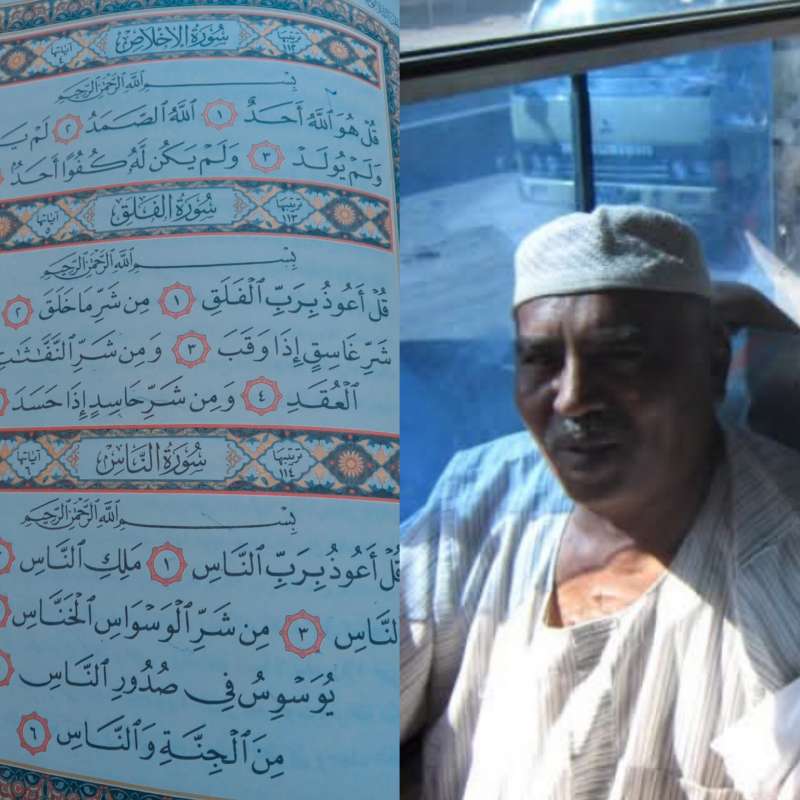 سُورَةُ الإِخْلَاصِ ترتيبها ١١٢ آياتها ٤
بِسْمِ ٱللَّهِ ٱلرَّحْمَٰنِ ٱلرَّحِيمِ
قُلْ هُوَ ٱللَّهُ أَحَدٌ ١ ٱللَّهُ ٱلصَّمَدُ ٢ لَمْ يَـ
وَلَمْ يُولَدْ ٣ وَلَمْ يَكُن لَّهُۥ كُفُوًا أَحَدٌۢ
ترتيبها ١١٣ سُورَةُ الفَلَقِ آياتها ٥
بِسْمِ ٱللَّهِ ٱلرَّحْمَٰنِ ٱلرَّحِيمِ
قُلْ أَعُوذُ بِرَبِّ ٱلْفَلَقِ ١ مِن شَرِّ مَا خَلَقَ ٢
شَرِّ غَاسِقٍ إِذَا وَقَبَ ٣ وَمِن شَرِّ ٱلنَّفَّٰثَٰتِ
ٱلْعُقَدِ ٤ وَمِن شَرِّ حَاسِدٍ إِذَا حَسَدَ
ترتيبها ١١٤ سُورَةُ النَّاسِ آياتها ٦
بِسْمِ ٱللَّهِ ٱلرَّحْمَٰنِ ٱلرَّحِيمِ
قُلْ أَعُوذُ بِرَبِّ ٱلنَّاسِ ١ مَلِكِ ٱلنَّاسِ
ٱلنَّاسِ ٣ مِن شَرِّ ٱلْوَسْوَاسِ ٱلْخَنَّاسِ
يُوَسْوِسُ فِى صُدُورِ ٱلنَّاسِ
مِنَ ٱلْجِنَّةِ وَٱلنَّاسِ ٦